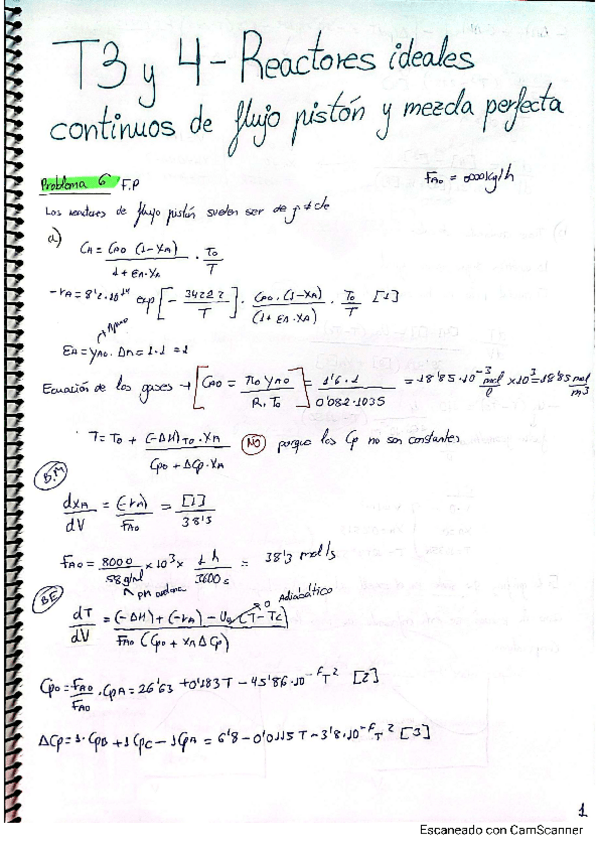 T3 y 4 - Reactores ideales
continuos de flujo pistón y mezcla perfecta
Problema 6 F.P
FA0 = 8000kg/h
Los reactores de flujo pistón suelen ser de p ≠ cte
a) CA = CA0 (1-XA) / 1 + EA·XA · T0 / T
-rA = 8'2·10^14 exp[- 34222 / T] · CA0·(1-XA) / (1 + EA·XA) · T0 / T [1]
EA = yA0·ΔnA = 1·1 = 1
Ecuación de los gases → [CA0 = π0 yA0 / R·T0] = 1'6·1 / 0'082·1035 = 18'85·10^-3 mol/l x10^3 = 18'85 mol/m3
T = T0 + (-ΔH)T0·XA / Cp0 + ΔCp·XA NO porque los Cp no son constantes
B.M
dXA / dV = (-rA) / FA0 = [1] / 38'3
FA0 = 8000 / 58 g/mol x10^3 x 1h / 3600s = 38'3 mol/s
PM acetona
BE
dT / dV = (-ΔH) + (-rA) - Ua (T - Tc) / FA0 (Cp0 + XA ΔCp)
0 Adiabático
Cp0 = FA0 / FA0 · CpA = 26'63 + 0'183T - 45'86·10^-6 T^2 [2]
ΔCp = 1·CpB + 1CpC - 1CpA = 6'8 - 0'0115T - 3'8·10^-6 T^2 [3]
1
Escaneado con CamScanner